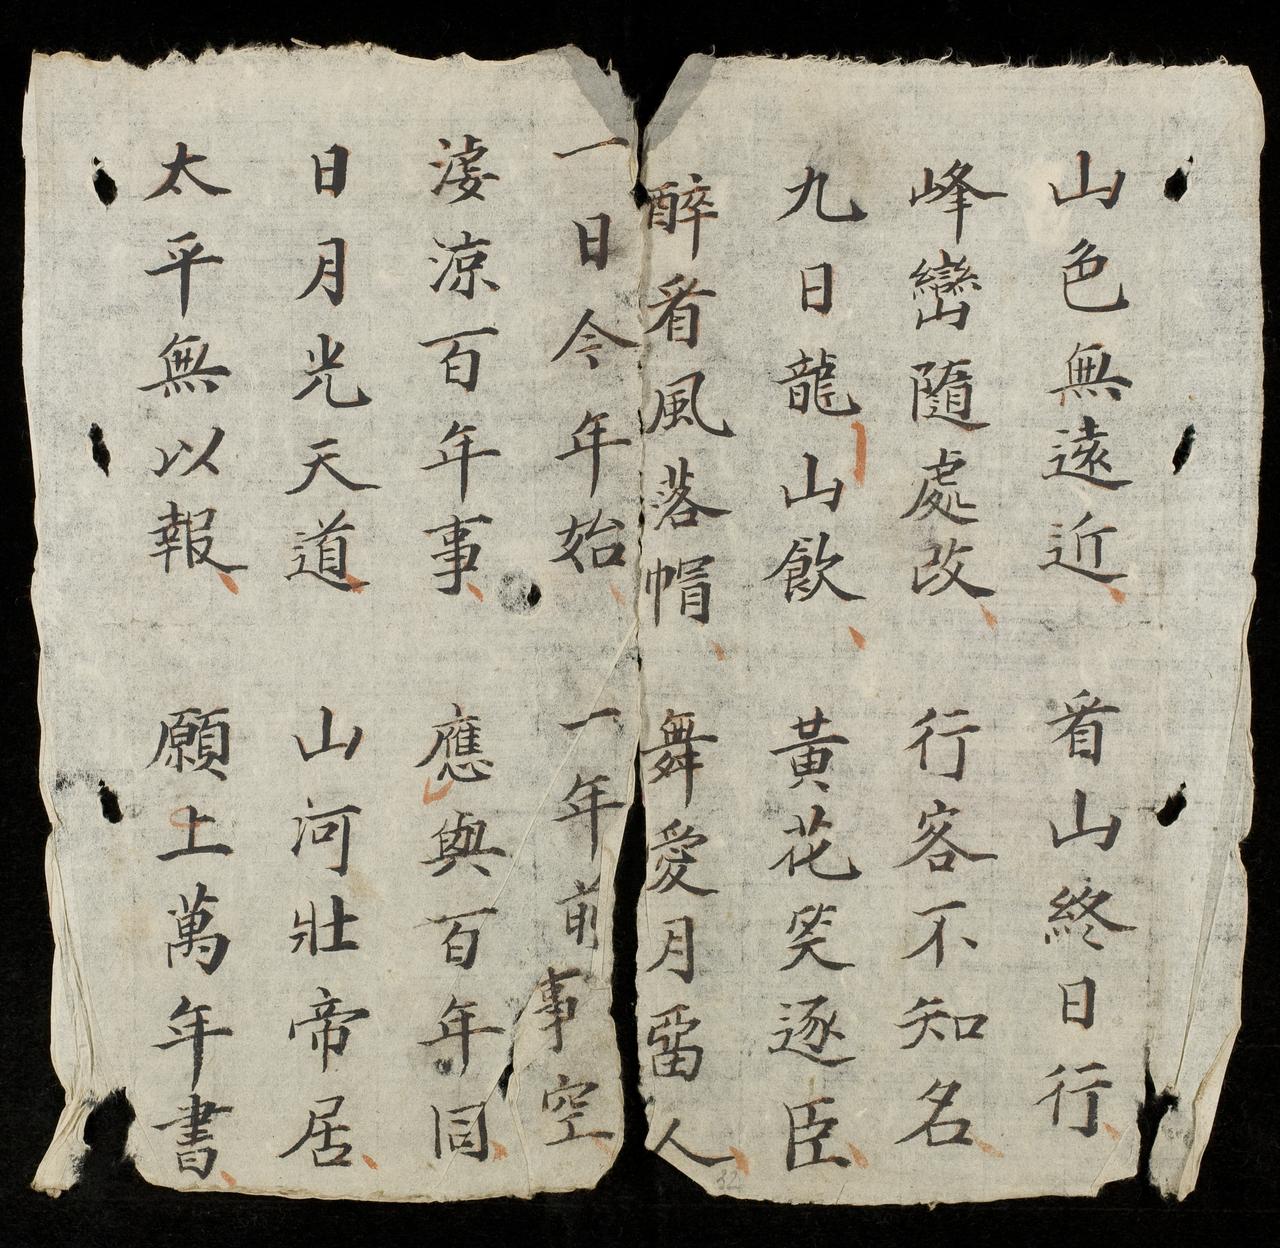 山色無遠近 看山終日行
峰巒隨處改 行客不知名
九日龍山飲 黃花笑逐臣
醉看風落帽 舞愛月留人
一日今年始 一年前事空
淒涼百年事 應與百年同
日月光天道 山河壯帝居
太平無以報 願上萬年書